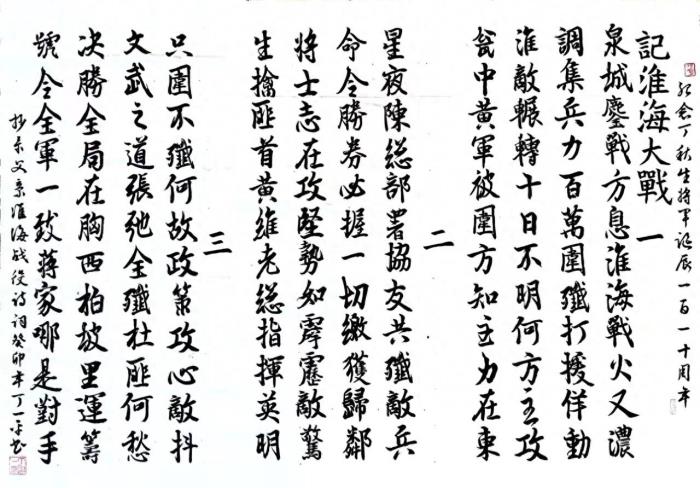 紀念丁秋生將軍誕辰一百一十周年
記淮海大戰 一
泉城鏖戰方息淮海戰火又濃
調集兵力百萬圍殲打援佯動
淮敵輾轉十日不明何方主攻
瓮中黃軍被圍方知主力在東
二
星夜陳總部署協友共殲敵兵
命令勝券必握一切繳獲歸鄰
將士志在攻堅勢如霹靂敵驚
生擒匪首黃維老總指揮英明
三
只圍不殲何故政策攻心敵抖
文武之道張弛全殲杜匪何愁
决勝全局在胸西柏坡里運籌
號令全軍一致蔣家哪是對手
抄录父亲淮海战役詩詞癸卯年丁一平书